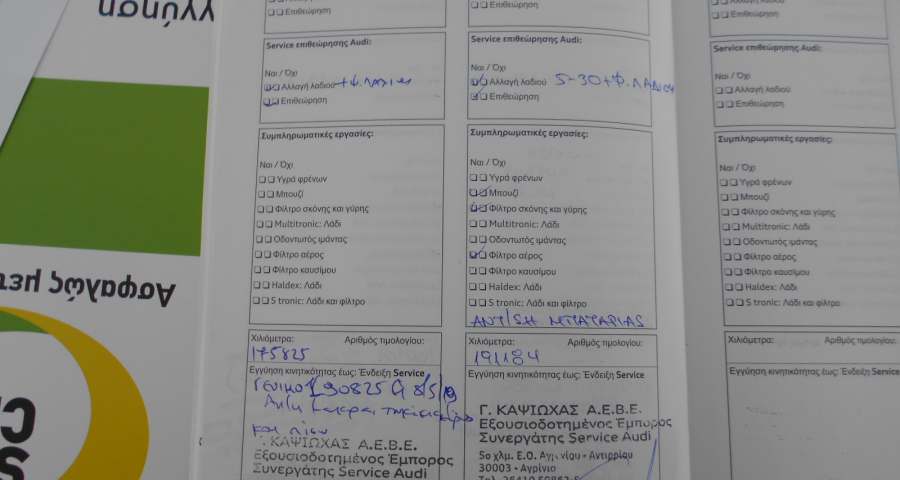 Εγγύηση
Ασφαλώς μετ
Επιθεώρηση
Service επιθεώρησης Audi:
Ναι / Όχι
Αλλαγή λαδιού +Φ.
Επιθεώρηση
Συμπληρωματικές εργασίες:
Ναι / Όχι
Υγρά φρένων
Μπουζί
Φίλτρο σκόνης και γύρης
Multitronic: Λάδι
Οδοντωτός ιμάντας
Φίλτρο αέρος
Φίλτρο καυσίμου
Haldex: Λάδι
S tronic: Λάδι και φίλτρο
Χιλιόμετρα: Αριθμός τιμολογίου:
175825
Εγγύηση κινητικότητας έως: Ένδειξη Service
και πίσω
Γ. ΚΑΨΙΩΧΑΣ Α.Ε.Β.Ε.
Εξουσιοδοτημένος Έμπορος
Συνεργάτης Service Audi
Επιθεώρηση
Service επιθεώρησης Audi:
Ναι / Όχι
Αλλαγή λαδιού 5-30+Φ. ΛΑΔΙΟΥ
Επιθεώρηση
Συμπληρωματικές εργασίες:
Ναι / Όχι
Υγρά φρένων
Μπουζί
Φίλτρο σκόνης και γύρης
Multitronic: Λάδι
Οδοντωτός ιμάντας
Φίλτρο αέρος
Φίλτρο καυσίμου
Haldex: Λάδι
S tronic: Λάδι και φίλτρο
ΑΝΤ/ΣΗ ΜΠΑΤΑΡΙΑΣ
Χιλιόμετρα: Αριθμός τιμολογίου:
191184
Εγγύηση κινητικότητας έως: Ένδειξη Service
Γ. ΚΑΨΙΩΧΑΣ Α.Ε.Β.Ε.
Εξουσιοδοτημένος Έμπορος
Συνεργάτης Service Audi
5ο χλμ. Ε.Ο. Αγρινίου - Αντιρρίου
30003 - Αγρίνιο
Αλλαγή λαδιού
Επιθεώρηση
Service επιθεώρησης Audi:
Ναι / Όχι
Αλλαγή λαδιού
Επιθεώρηση
Συμπληρωματικές εργασίες:
Ναι / Όχι
Υγρά φρένων
Μπουζί
Φίλτρο σκόνης και γύρης
Multitronic: Λάδι
Οδοντωτός ιμάντας
Φίλτρο αέρος
Φίλτρο καυσίμου
Haldex: Λάδι
S tronic: Λάδι και φίλτρο
Χιλιόμετρα: Αριθμός τιμολογίου:
Εγγύηση κινητικότητας έως: Ένδειξη Service